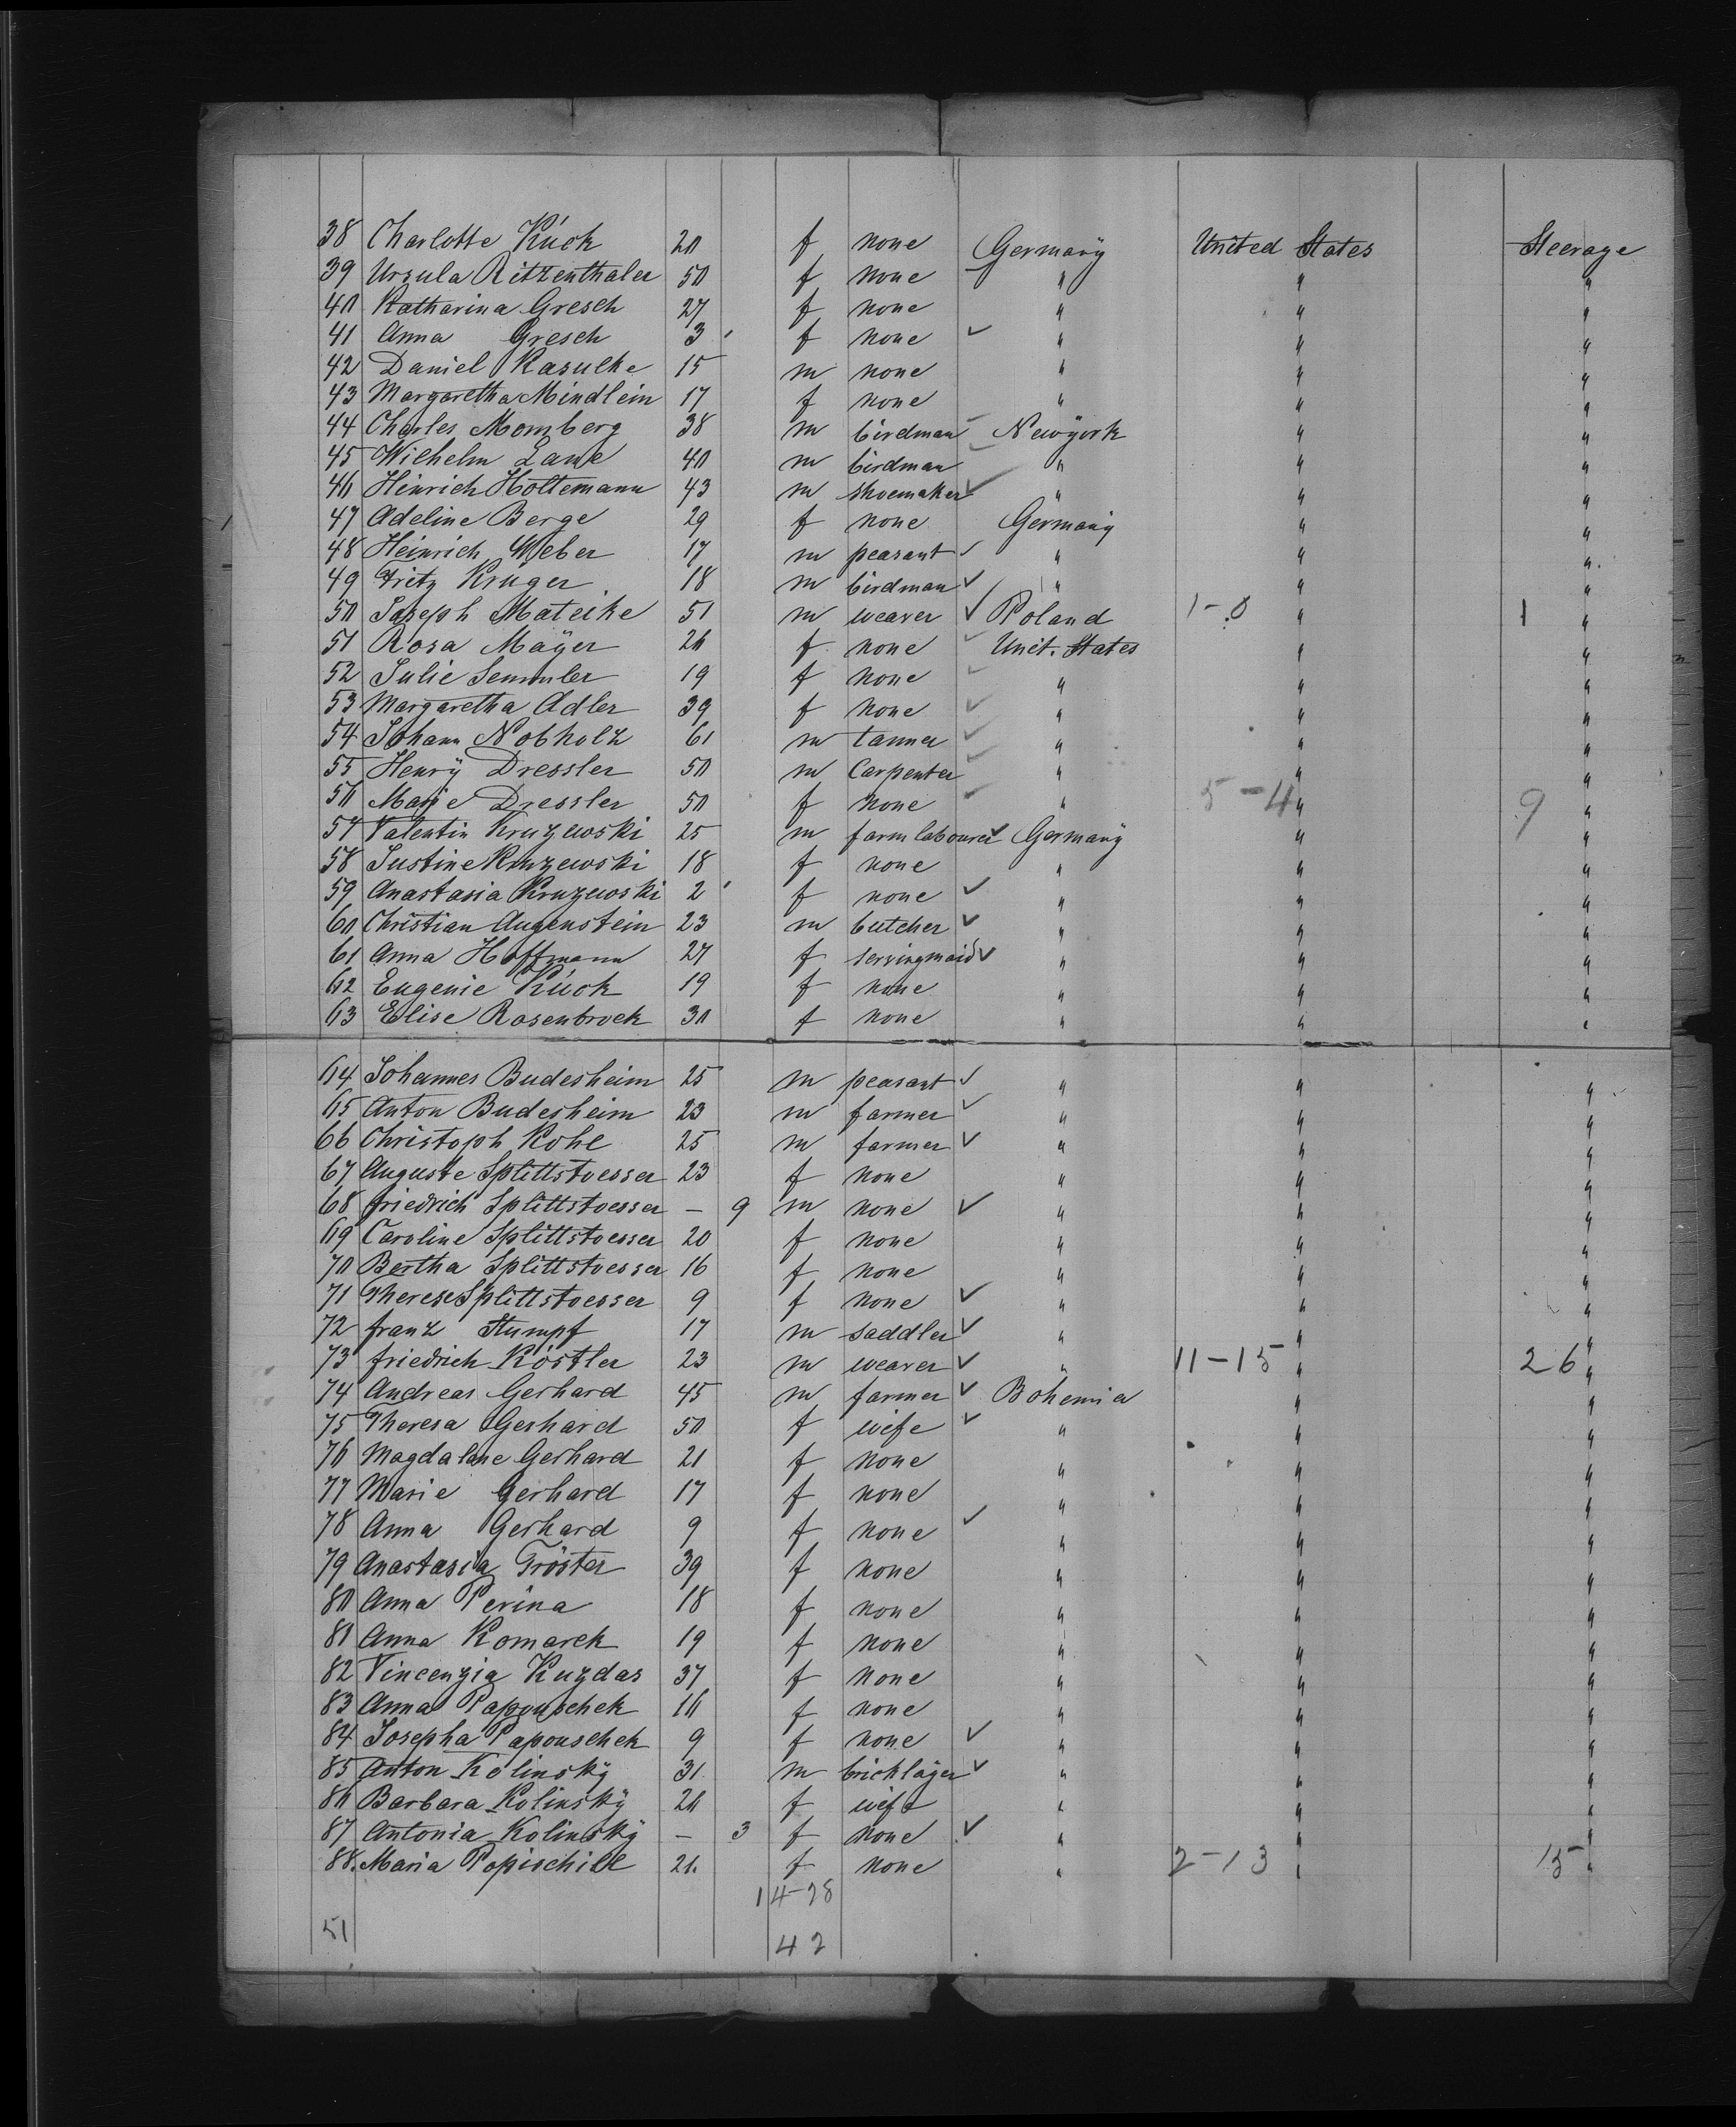 38 Charlotte Kúck 20 f none Germany United States Steerage
39 Ursula Ritzenthaler 50 f none " " "
40 Katharina Gresch 27 f none " " "
41 Anna Gresch 3 f none ✓ " " "
42 Daniel Kasulke 15 m none " " "
43 Margaretha Mindlein 17 f none " " "
44 Charles Momberg 38 m birdman Newyork " "
45 Wilhelm Lame 40 m birdman " " "
46 Hinrich Holtemann 43 m shoemaker ✓ " " "
47 Adeline Berge 29 f none Germany " "
48 Heinrich Weber 17 m peasant ✓ " " "
49 Fritz Kruger 18 m birdman ✓ " " "
50 Joseph Mateike 51 m weaver ✓ Poland 1-0 " 1 "
51 Rosa Mayer 26 f none ✓ Unit. States " "
52 Julie Semmler 19 f none ✓ " " "
53 Margaretha Adler 39 f none ✓ " " "
54 Johann Nobholz 61 m tanner ✓ " " "
55 Henry Dressler 50 m Carpenter ✓ " " "
56 Marie Dressler 50 f none ✓ " 5-4 " 9 "
57 Valentin Kruzewski 25 m farmlabourer ✓ Germany " "
58 Justine Kruzewski 18 f none " " "
59 Anastasia Kruzewski 2 f none ✓ " " "
60 Christian Augenstein 23 m butcher ✓ " " "
61 Anna Hoffmann 27 f servingmaid ✓ " " "
62 Eugenie Kúck 19 f none " " "
63 Elise Rosenbrock 30 f none " " "
64 Johannes Budesheim 25 m peasant ✓ " " "
65 Anton Budesheim 23 m farmer ✓ " " "
66 Christoph Kohl 25 m farmer ✓ " " "
67 Auguste Splittstoesser 23 f none " " "
68 friedrich Splittstoesser — 9 m none ✓ " " "
69 Caroline Splittstoesser 20 f none " " "
70 Bertha Splittstoesser 16 f none " " "
71 Therese Splittstoesser 9 f none ✓ " " "
72 franz Stumpf 17 m saddler ✓ " " "
73 friedrich Köstler 23 m weaver ✓ " 11-15 " 26 "
74 Andreas Gerhard 45 m farmer ✓ Bohemia " "
75 Theresa Gerhard 50 f wife ✓ " " "
76 Magdalane Gerhard 21 f none " " "
77 Marie Gerhard 17 f none " " "
78 Anna Gerhard 9 f none ✓ " " "
79 Anastasia Tröster 39 f none " " "
80 Anna Perina 18 f none " " "
81 Anna Komarek 19 f none " " "
82 Vincenzia Kuzdas 37 f none " " "
83 Anna Papouschek 16 f none " " "
84 Josepha Papouschek 9 f none ✓ " " "
85 Anton Kolinsky 31 m bricklayer ✓ " " "
86 Barbara Kolinsky 26 f wife " " "
87 Antonia Kolinsky — 3 f none ✓ " " "
88. Maria Popischill 21. f none " 2-13 " 15 "
14-28
51 42